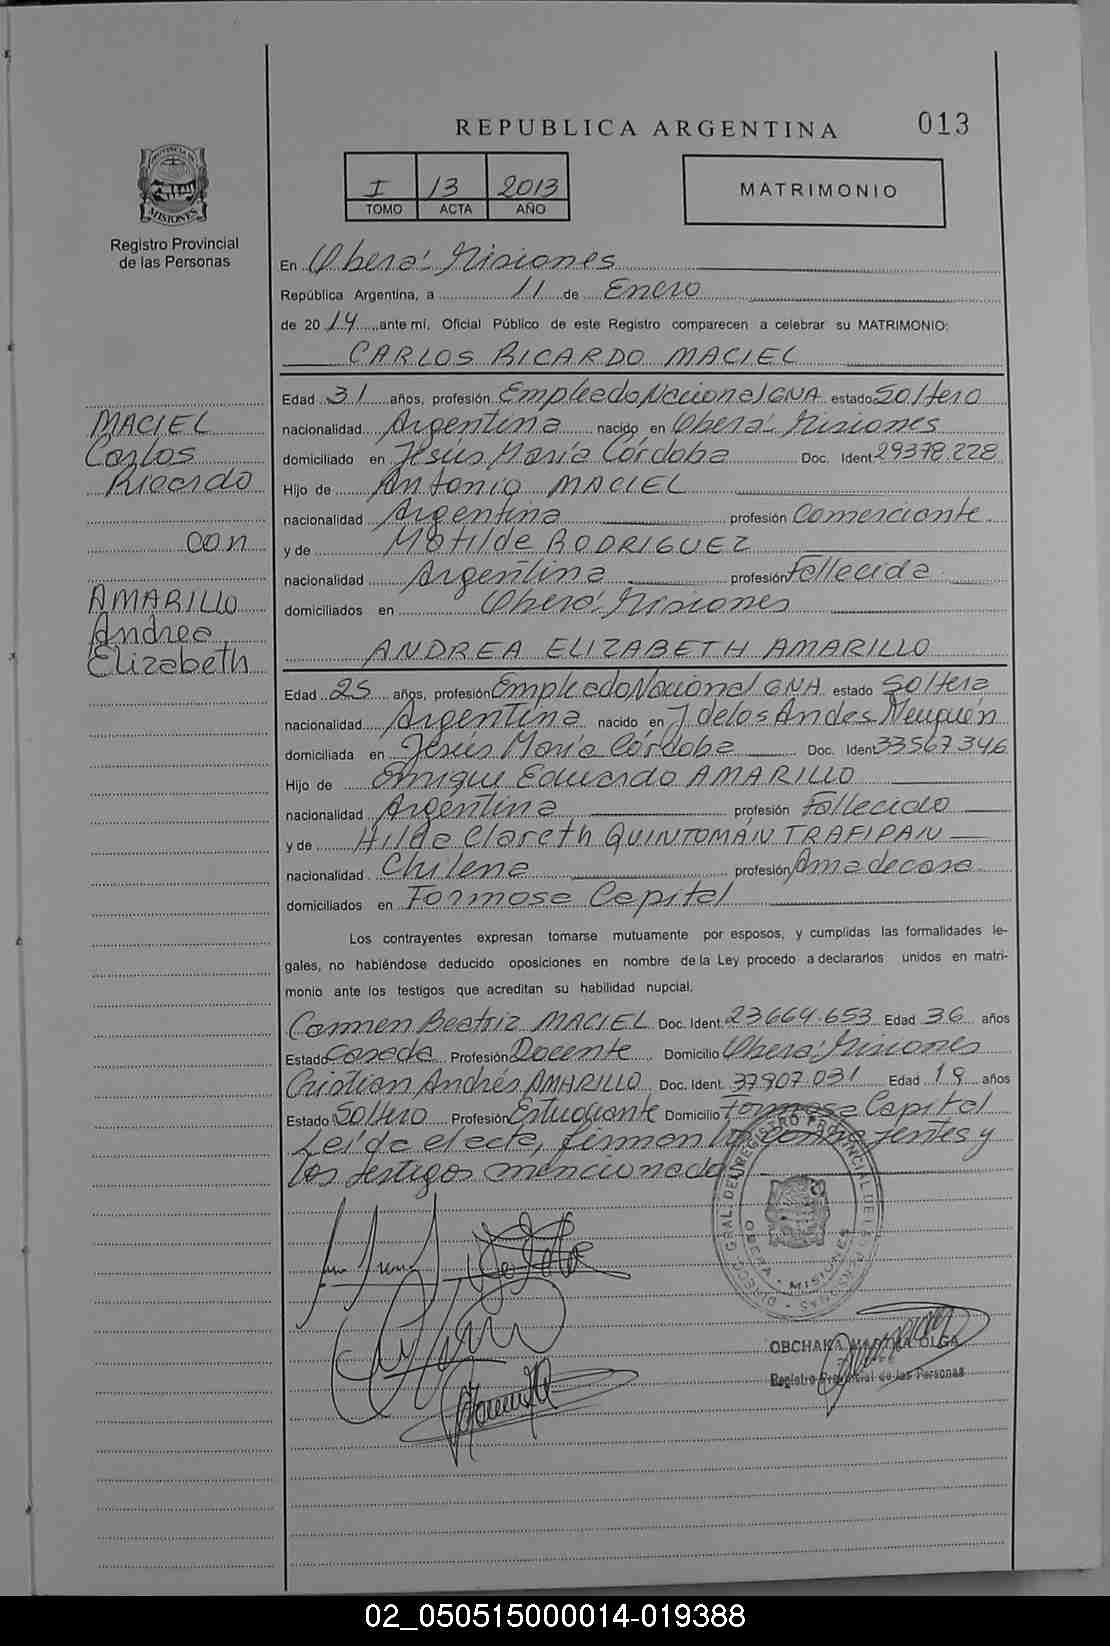 REPUBLICA ARGENTINA 013
I 13 2013
TOMO ACTA AÑO
MATRIMONIO
PROVINCIA DE
MISIONES
Registro Provincial
de las Personas
En Oberá: Misiones
República Argentina, a 11 de Enero
de 2014 ante mí, Oficial Público de este Registro comparecen a celebrar su MATRIMONIO:
CARLOS RICARDO MACIEL
MACIEL
Carlos
Ricardo
con
AMARILLO
Andrea
Elizabeth
Edad 31 años, profesión Empleado Nacional GNA estado Soltero
nacionalidad Argentina nacido en Oberá: Misiones
domiciliado en Jesús María Córdoba Doc. Ident 29378.228
Hijo de Antonio MACIEL
nacionalidad Argentina profesión Comerciante
y de Matilde RODRIGUEZ
nacionalidad Argentina profesión Fallecida
domiciliados en Oberá: Misiones
ANDREA ELIZABETH AMARILLO
Edad 25 años, profesión Empleado Nacional GNA estado Soltera
nacionalidad Argentina nacido en J delos Andes Neuquén
domiciliada en Jesús María Córdoba Doc. Ident 33567346
Hijo de Enrique Eduardo AMARILLO
nacionalidad Argentina profesión Fallecido
y de Hilda Clareth QUINTOMÁN TRAFIPAN
nacionalidad Chilena profesión Amadecasa
domiciliados en Formosa Capital
Los contrayentes expresan tomarse mutuamente por esposos, y cumplidas las formalidades le-
gales, no habiéndose deducido oposiciones en nombre de la Ley procedo a declararlos unidos en matri-
monio ante los testigos que acreditan su habilidad nupcial.
Carmen Beatriz MACIEL Doc. Ident. 23664.653 Edad 36 años
Estado Casada Profesión Docente Domicilio Oberá: Misiones
Cristian Andrés AMARILLO Doc. Ident. 37907.031 Edad 19 años
Estado Soltero Profesión Estudiante Domicilio Formosa Capital
Leída el acta, firman los contrayentes y
los testigos mencionados
DIRECC. GRAL. DEL REGISTRO PROVINCIAL DE LAS PERSONAS
OBERA - MISIONES
OBCHAKA MARTHA OLGA
Registro Provincial de las Personas
02_050515000014-019388